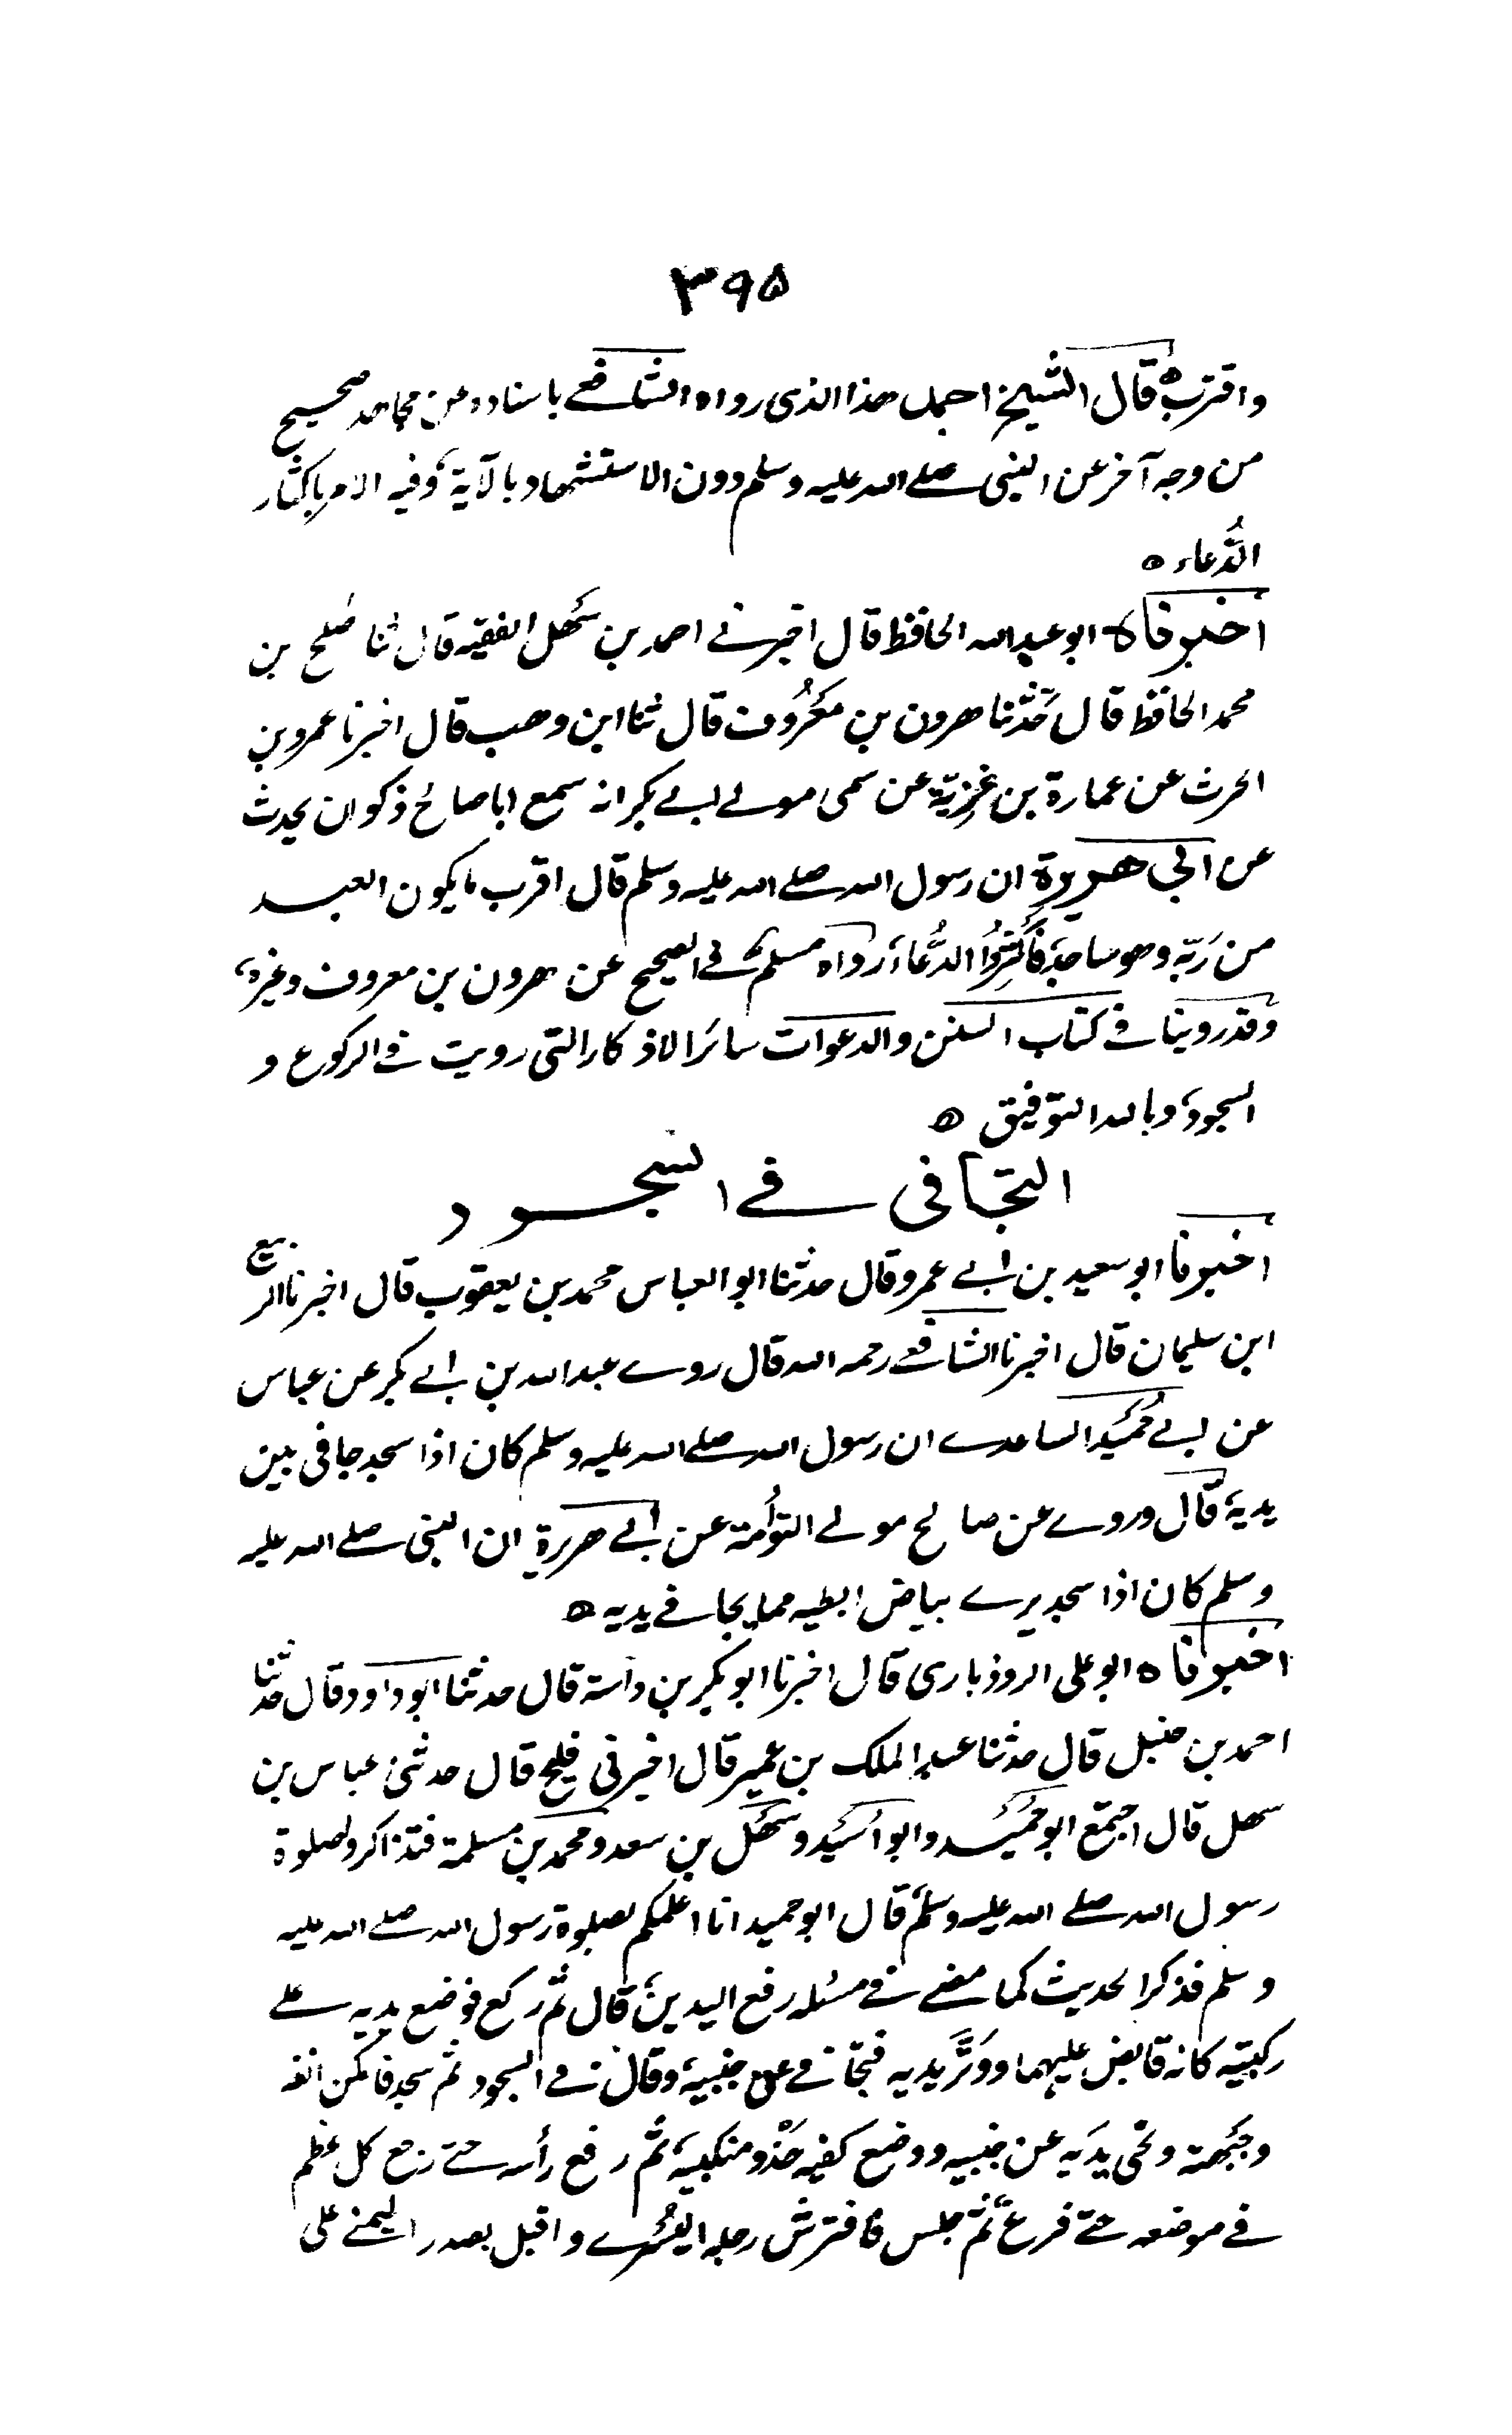 ٣٩٥
واقترب قال الشيخ احمد هذا الذى رواه الشافعي باسناده عن مجاهد صحيح
من وجه آخر عن النبى صلے الله عليه وسلم دون الاستشهاد بالآية، وفيه الامر باكثار
الدُّعاء ه
اخبرناه ابو عبد الله الحافظ قال اخبرنے احمد بن سَهل الفقيه قال ثنا صٰلح بن
محمد الحافظ قال حَدّثنا هرون بن معَرُوف قال ثنا ابن وهب قال اخبرنا عمرو بن
الحرث عن عمارة بن غَزِيّة عن سمى مولے ابے بكر انه سمع ابا صالح ذكوان يحدث
عن ابي هريرة ان رسول الله صلے الله عليه وسلم قال اقرب ما يكون العبد
من رَبّه وهو ساجد، فاَكثِرُوا الدُّعاء، رواه مسلم فے الصحيح عن هرون بن معروف وغيره،
وقد روينا فے كتاب السنن والدعوات سائر الاذكار التى رويت فے الركوع و
السجود، وبالله التوفيق ه
التجافى فے السجود
اخبرنا ابو سعيد بن ابے عمرو قال حدثنا ابو العباس محمد بن يعقوب قال اخبرنا الربيع
ابن سليمان قال اخبرنا الشافعے رحمه الله قال روے عبد الله بن ابے بكر عن عباس
عن ابے حُمَيد الساعدے ان رسول الله صلے الله عليه وسلم كان اذا سجد جافى بين
يديه، قال وروے عن صالح مولے التوأمة عن ابے هريرة ان النبى صلے الله عليه
وسلم كان اذا سجد يرے بياض ابطيه مما يجافے يديه ه
اخبرناه ابو على الروذبارى قال اخبرنا ابو بكر بن داسة قال حدثنا ابو داود قال حدثنا
احمد بن حنبل قال حدثنا عبد الملك بن عمير قال اخبرنى فليح قال حدثنى عباس بن
سهل قال اجتمع ابو حُمَيد وابو اُسَيد وسَهل بن سعد ومحمد بن مسلمة فتذاكروا صلوة
رسول الله صلے الله عليه وسلم قال ابو حميد انا اعلمكم بصلوة رسول الله صلے الله عليه
وسلم فذكر الحديث كما مضے فے مسئله رفع اليدين، قال ثم ركع فوضع يديه علے
ركبتيه كانه قابض عليهما ووَتَّر يديه فتجافے عن جنبيه، وقال فے السجود ثم سجد فامكن انفه
وجَبهته ونحى يدَيه عن جنبيه ووضع كفيه حَذو منكبيه، ثم رفع رأسه حتے رجع كل عظم
فے موضعه حتے فرغ، ثم جلس فافترش رجله اليسُرے واقبل بصدر اليمنے على